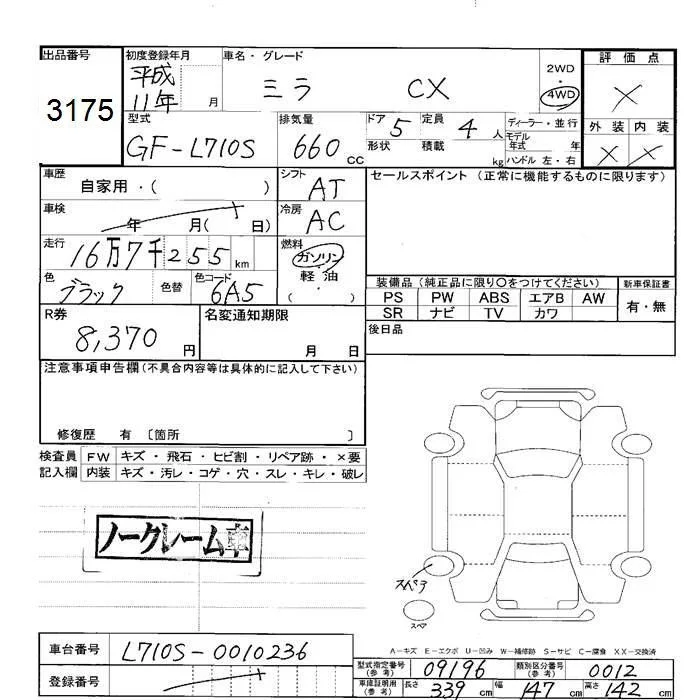 出品番号
3175
初度登録年月
平成
11年 月
車名・グレード
ミラ CX
2WD
4WD
評価点
×
外装 内装
× ×
型式
GF-L710S
排気量
660 CC
ドア 5
形状
定員 4 人
積載 kg
ディーラー・並行
モデル
年式 年
ハンドル 左・右
車歴
自家用・( )
シフト
AT
セールスポイント (正常に機能するものに限ります)
車検
年 月( 日)
冷房
AC
走行
16万7千255 km
燃料
ガソリン
軽・油
( )
色
ブラック
色替
色コード
6A5
装備品 (純正品に限り〇をつけてください)
新車保証書
PS PW ABS エアB AW
SR ナビ TV カワ
有・無
R券
8,370 円
名変通知期限
月 日
後日品
注意事項申告欄 (不具合内容等は具体的に記入して下さい)
修復歴 有 〔箇所 〕
検査員
記入欄
FW キズ・飛石・ヒビ割・リペア跡・×要
内装 キズ・汚レ・コゲ・穴・スレ・キレ・破レ
ノークレーム車
スペア
スペア
A-キズ E-エクボ U-凹み W-補修跡 S-サビ C-腐食 XX-交換済
車台番号
L710S-0010236
登録番号
型式指定番号
(参考)
09196
類別区分番号
(参考)
0012
車庫証明用
(参考)
長さ 339 cm 幅 147 cm 高さ 142 cm